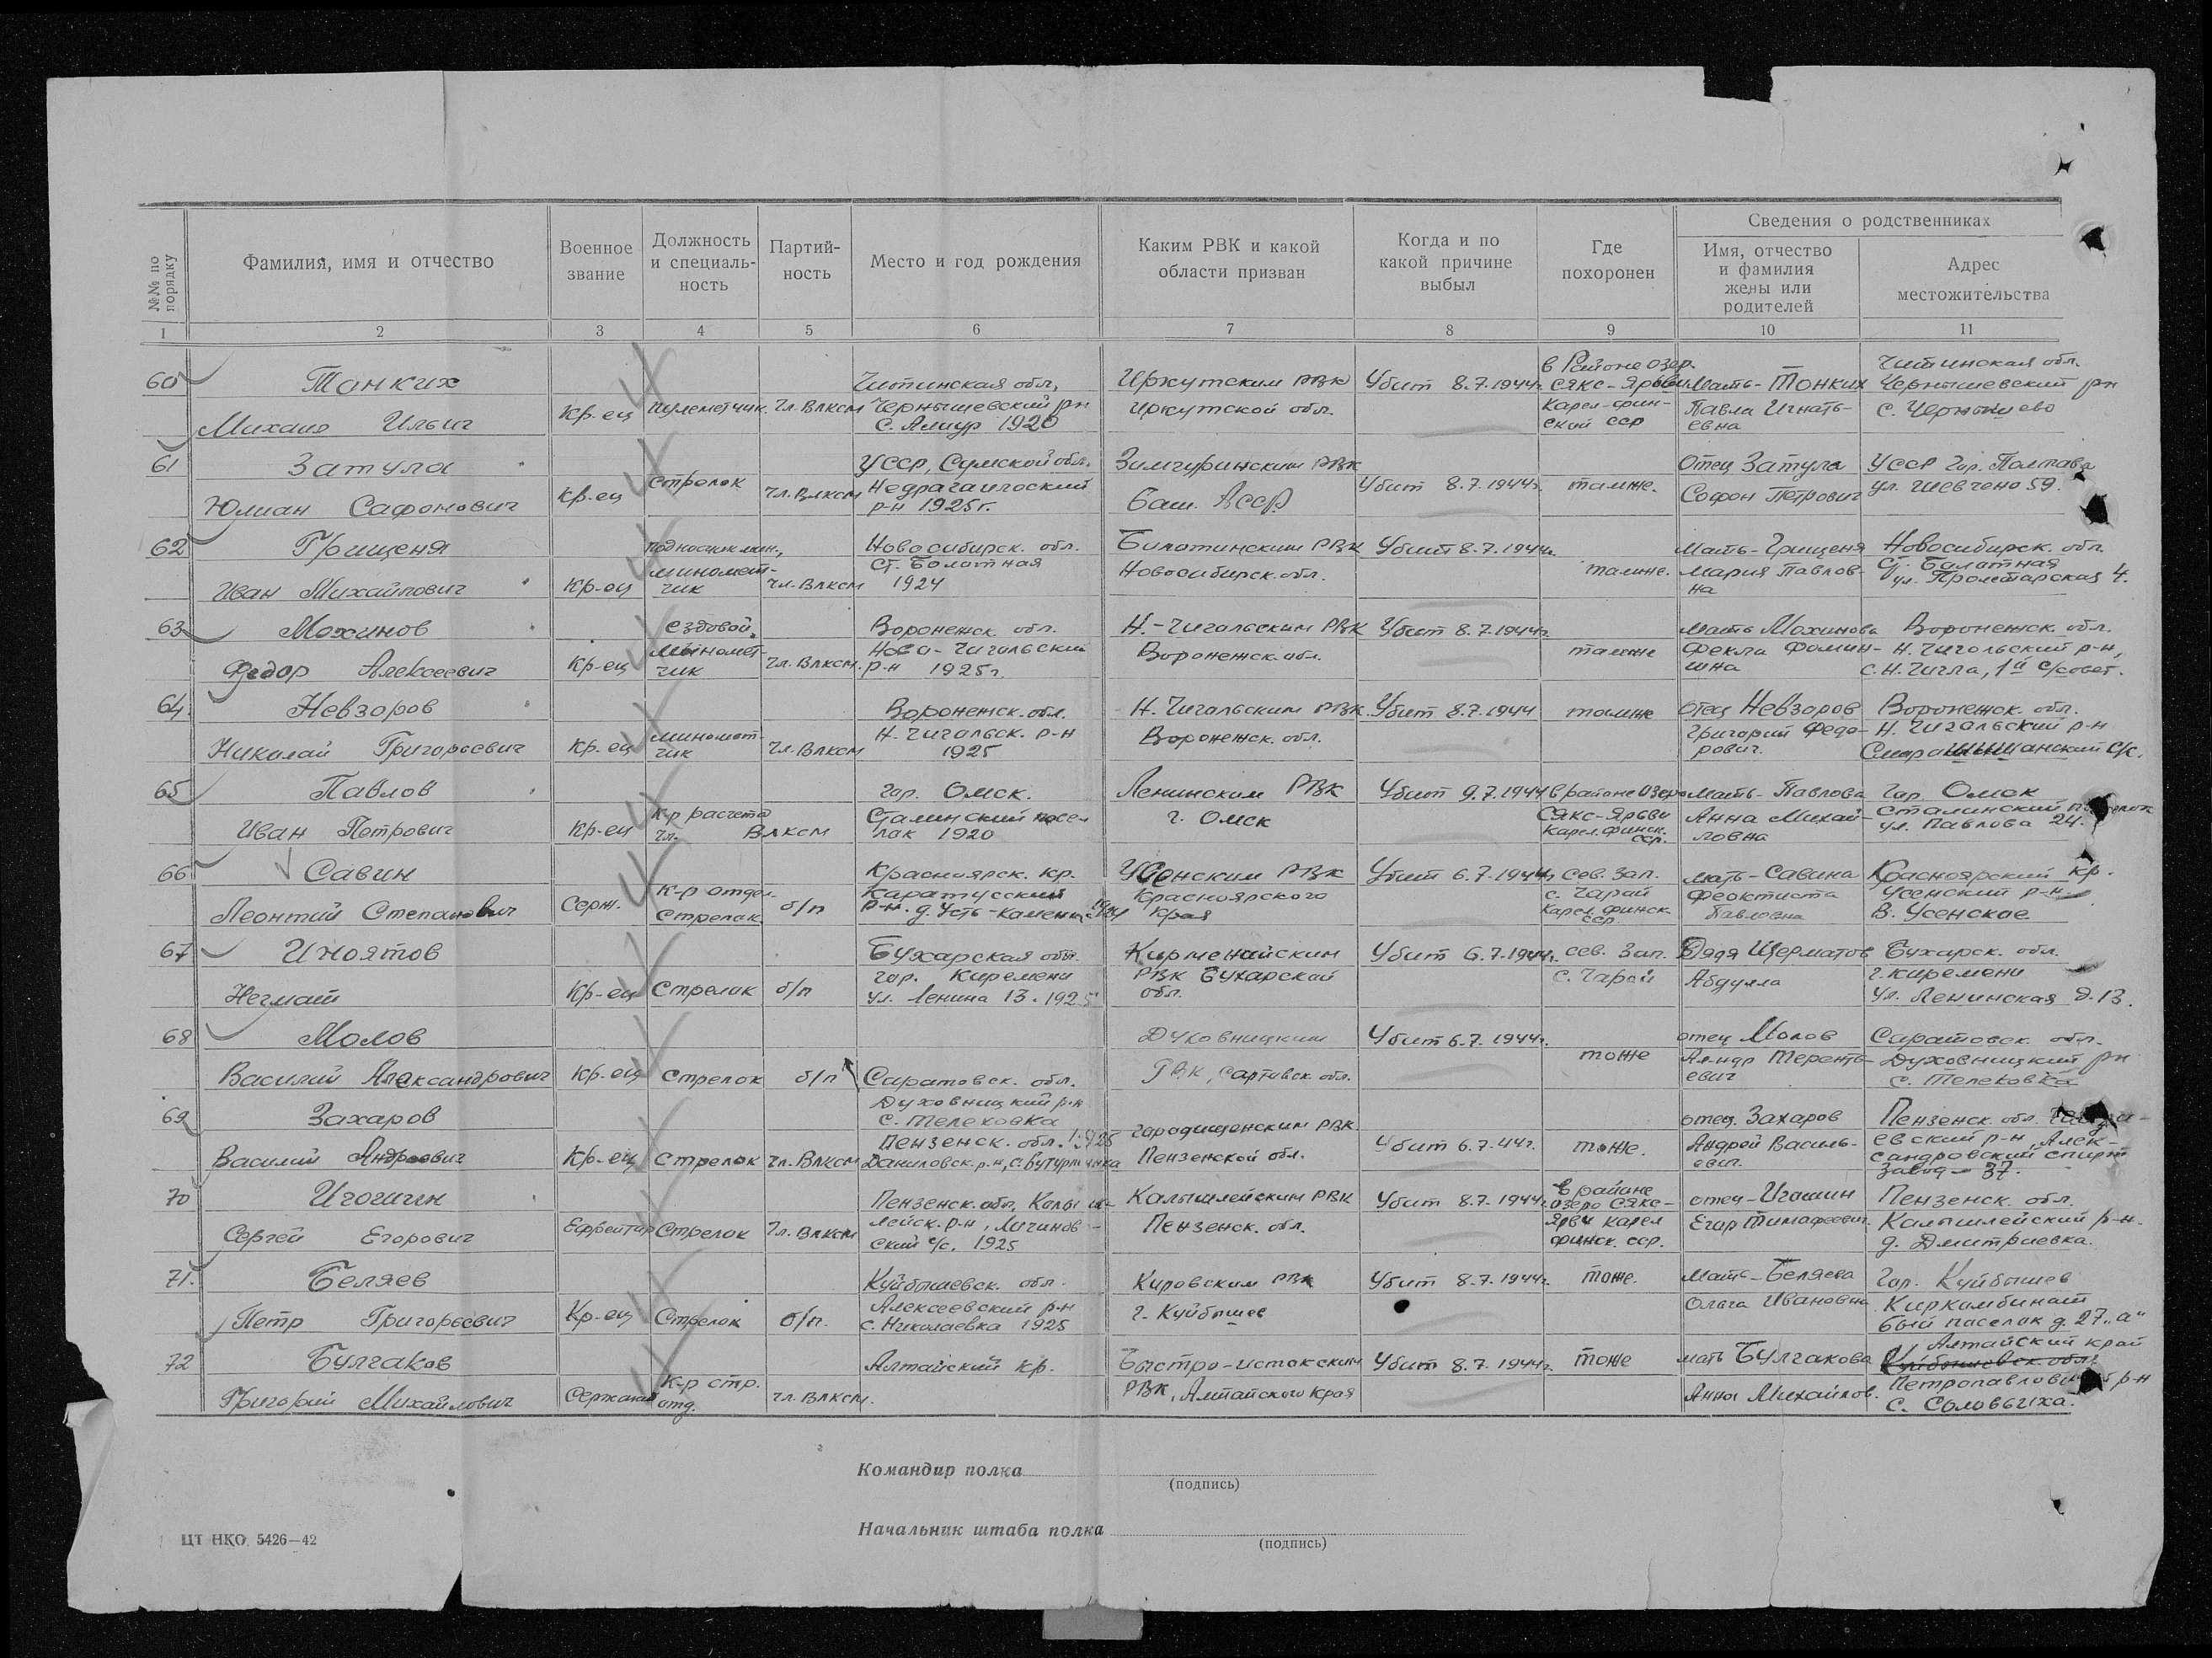 №№ по порядку
Фамилия, имя и отчество
Военное звание
Должность и специальность
Партийность
Место и год рождения
Каким РВК и какой области призван
Когда и по какой причине выбыл
Где похоронен
Сведения о родственниках
Имя, отчество и фамилия жены или родителей
Адрес местожительства
1 2 3 4 5 6 7 8 9 10 11
60 Тонких Михаил Ильич
Кр-ец
пулеметчик
Чл. Влксм
Читинская обл,
Чернышевский рн
С. Алиур 1920
Иркутским РВК
Иркутской обл.
Убит 8.7.1944г.
в Районе озер.
Сякс-Ярвы
Карел-фин-
ский сср
Мать-Тонких
Павла Игнать-
евна
Читинская обл.
Чернышевский рн
с. Чернышево
61 Затула Юлиан Сафонович
Кр.ец
стрелок
Чл. Влксм
Усср, Сумской обл.
Недрагаилоский
р-н 1925г.
Зилгуринским РВК
Баш. Асср.
Убит 8.7.1944г.
тамже.
Отец Затула
Софон Петрович
Усср гор. Полтава
ул. Шевчено 59.
62 Грищеня Иван Михайлович
Кр-ец
подносчик мин.,
миномет-
чик
Чл. Влксм
Новосибирск. обл.
Ст. Болотная
1924
Болотинским РВК
Новосибирск. обл.
Убит 8.7.1944г.
тамже.
мать-Грищеня
Мария Павлов-
на
Новосибирск. обл.
Ст. Балатная
ул. Пролетарская 4.
63 Мохинов Федор Алексеевич
Кр-ец
ездовой.
миномет-
чик
Чл. Влксм.
Воронежск. обл.
Ново-Чигольский
р-н 1925г.
Н.-Чигольским РВК
Воронежск. обл.
Убит 8.7.1944г.
тамже
мать Мохинова
Фекла Фомин-
ишна
Воронежск. обл.
Н. Чигольский р-н,
с. Н. Чигла, 1й с/совет.
64. Невзоров Николай Григорьевич
Кр.ец
миномет-
чик
Чл. Влксм
Воронежск. обл.
Н. Чигольск. р-н
1925
Н. Чигальским РВК.
Воронежск. обл.
Убит 8.7.1944
тамже
отец Невзоров
Григорий Федо-
рович.
Воронежск. обл.
Н. Чигольский р-н
с/с.
65 Павлов Иван Петрович
Кр-ец
К-р расчета
Чл. Влксм
Гор. Омск.
Сталинский посел
лок 1920
Ленинским РВК
г. Омск
Убит 9.7.1944
в районе Озера
Сякс-Ярьви
Карел. финск.
сср.
Мать-Павлова
Анна Михай-
ловна
Гор Омск
Сталинский поселок
ул. Павлова 24.
66 Савин Леонтий Степанович
Серж.
К-р отдел.
Стрелок
б/п
Красноярск. кр.
Каратусский
р-н. д. Усть-Каменка 1924
Усенским РВК
Красноярского
края
Убит 6.7.1944г
Сев. Зап.
с. Чарай
Карел. финск.
сср
мать-Савина
Феоктиста
Павловна
Красноярский кр.
Усенский р-н
В. Усенское
67 Иноятов Негмат
Кр-ец
Стрелок
б/п
Бухарская обл.
гор. Киремени
ул. Ленина 13. 1925
Кирменийским
РВК Бухарской
обл.
Убит 6.7.1944г.
сев. Зап.
с. Чарай
Дядя Шерматов
Абдулла
Бухарск. обл.
г. Киремени
ул. Ленинская д. 13.
68 Молов Василий Александрович
Кр-ец
Стрелок
б/п
Саратовск. обл.
Духовницкий р-н
с. Телековка
Духовницким
РВК, Сартивск. обл.
Убит 6.7.1944г.
тоже
отец Молов
Ал-ндр Теренть-
евич
Саратовск. обл.
Духовницкий рн
с. Телековка
69 Захаров Василий Андреевич
Кр-ец
Стрелок
Чл. Влксм
Пензенск. обл. 1925
Даниловск. р-н, с. Бутурлинка
Городищенским РВК
Пензенской обл.
Убит 6.7.44г.
тоже.
отец. Захаров
Андрей Василь-
евич.
Пензенск. обл.
евский р-н, Алек-
сандровский спирт
завод - 37.
70 Игошин Сергей Егорович
Ефрейтор
Стрелок
Чл. Влксм
Пензенск. обл, Колыш-
лейск. р-н, Лачинов-
ский с/с. 1925
Калышлейским РВК
Пензенск. обл.
Убит 8.7.1944г.
в районе
озера Сякс-
Ярви Карел
финск. сср.
отец-Игошин
Егор Тимофеевич.
Пензенск. обл.
Калышлейский р-н.
д. Дмитриевка.
71. Беляев Петр Григорьевич
Кр-ец
Стрелок
б/п.
Куйбышевск. обл.
Алексеевский р-н
с. Николаевка 1925
Кировским РВК
г. Куйбышев
Убит 8.7.1944г.
тоже.
Мать-Беляева
Ольга Ивановна
Гор. Куйбышев
Киркомбинат
бый паселок д. 27 „а"
72 Булгаков Григорий Михайлович
Сержант
К-р стр.
отд.
чл. Влксм.
Алтайский кр.
Быстро-истокским
РВК, Алтайского Края
Убит 8.7.1944г.
тоже
мать Булгакова
Анна Михайлов.
Алтайский край
Куйбышевск. обл.
Петропавловский р-н
с. Соловьиха.
Командир полка
(подпись)
Начальник штаба полка
(подпись)
ЦТ НКО 5426—42